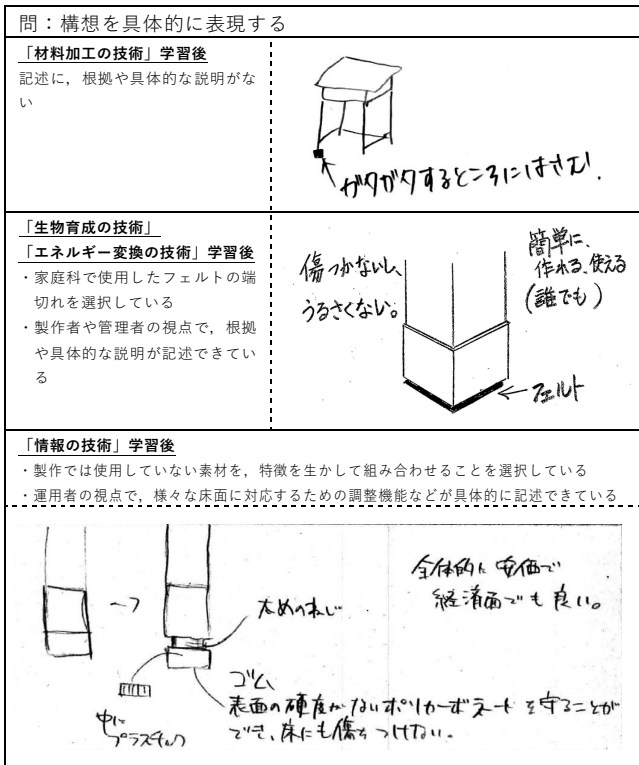 問：構想を具体的に表現する
「材料加工の技術」学習後
記述に，根拠や具体的な説明がな
い
ガタガタするところにはさむ。
「生物育成の技術」
「エネルギー変換の技術」学習後
・家庭科で使用したフェルトの端
切れを選択している
・製作者や管理者の視点で，根拠
や具体的な説明が記述できてい
る
傷つかないし、
うるさくない。
簡単に、
作れる、使える
（誰でも）
フェルト
「情報の技術」学習後
・製作では使用していない素材を，特徴を生かして組み合わせることを選択している
・運用者の視点で，様々な床面に対応するための調整機能などが具体的に記述できている
全体的に安価で
経済面でも良い。
太めのねじ
ゴム
表面の硬度がないポリカーボネートを守ることが
でき、床にも傷をつけない。
中に
プラスチック